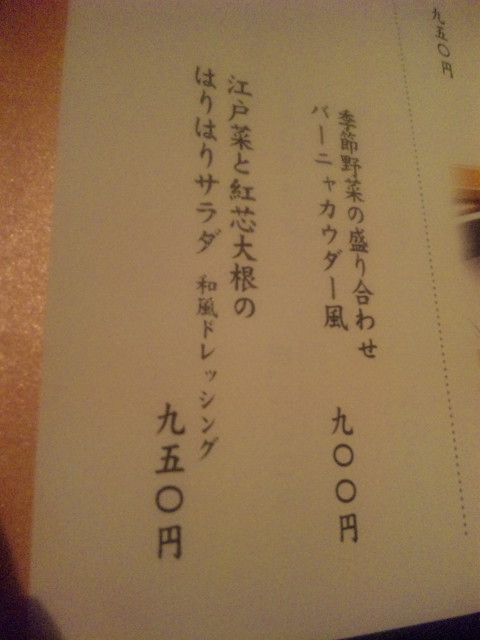 九五〇円
季節野菜の盛り合わせ
バーニャカウダー風
九〇〇円
江戸菜と紅芯大根の
はりはりサラダ 和風ドレッシング
九五〇円